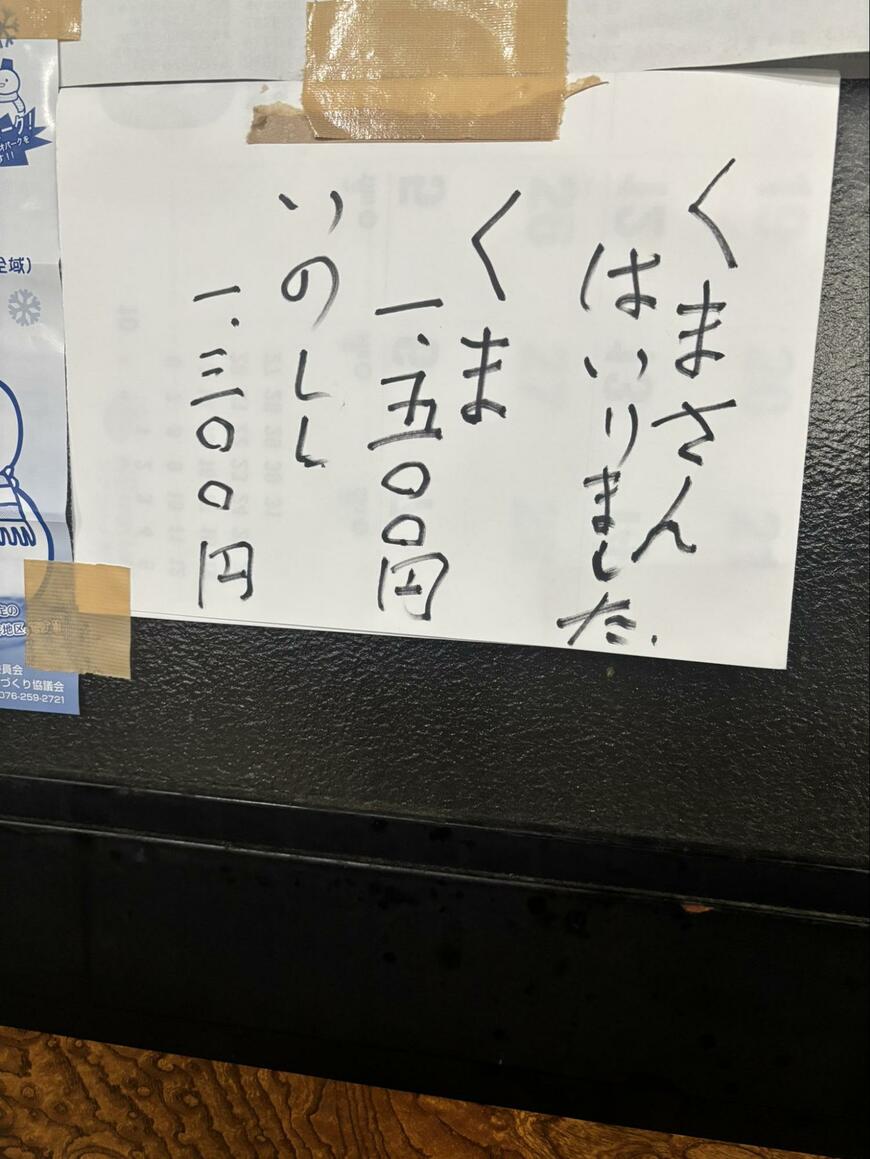 くまさん
はいりました.
くま
一、五〇〇円
いのしし
一.三〇〇円
ーク!
全域)
定の
地区
員会
づくり協議会
076-259-2721